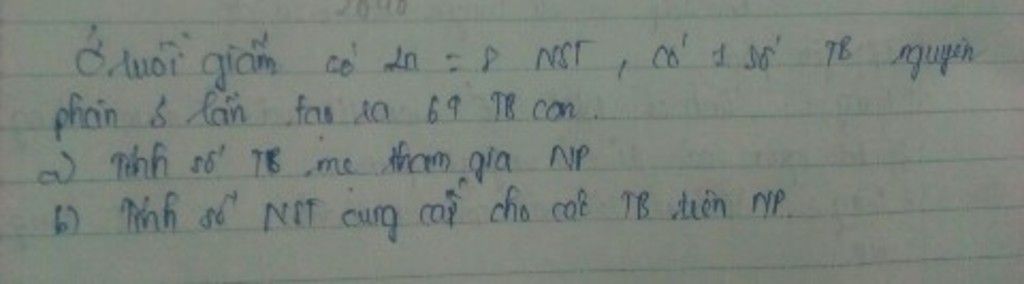 Ở ruồi giấm có 2n = 8 NST, có 1 số TB nguyên
phân 5 lần tạo ra 64 TB con.
a) Tính số TB mẹ tham gia NP
b) Tính số NST cung cấp cho các TB trên NP.